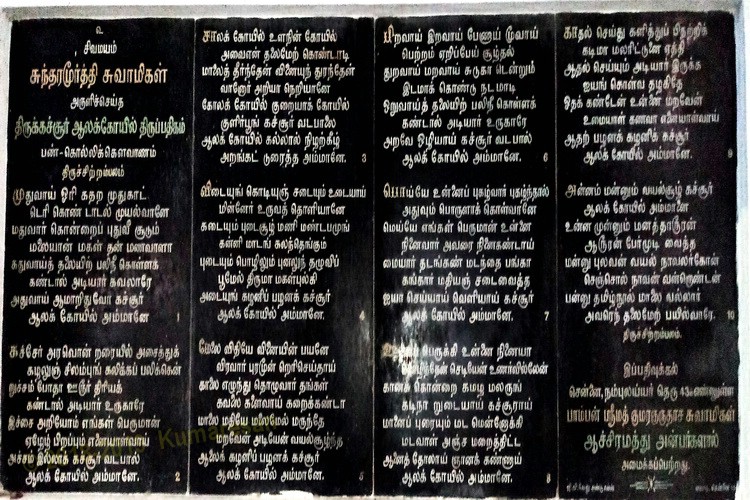 உ
சிவமயம்
சுந்தரமூர்த்தி சுவாமிகள்
அருளிச்செய்த
திருக்கச்சூர் ஆலக்கோயில் திருப்பதிகம்
பண்-கொல்லிக்கௌவாணம்
திருச்சிற்றம்பலம்
முதுவாய் ஓரி கதற முதுகாட்
டெரி கொண் டாடல் முயல்வானே
மதுவார் கொன்றைப் புதுவீ சூடும்
மலையான் மகள் தன் மணவாளா
கதுவாய்த் தலையிற் பலிநீ கொள்ளக்
கண்டால் அடியார் கவலாரே
அதுவாய் ஆமாறிதுவோ கச்சூர்
ஆலக் கோயில் அம்மானே 1
கச்சேர் அரவொன் றரையில் அசைத்துக்
கழலுஞ் சிலம்புங் கலிக்கப் பலிக்கென்
றுச்சம் போதா ஊரூர் திரியக்
கண்டால் அடியார் உருகாரே
இச்சை அறியோம் எங்கள் பெருமான்
ஏழேழ் பிறப்பும் எனையாள்வாய்
அச்சம் இல்லாக் கச்சூர் வடபால்
ஆலக் கோயில் அம்மானே. 2
சாலக் கோயில் உளநின் கோயில்
அவைஎன் தலைமேற் கொண்டாடி
மாலைத் தீர்ந்தேன் வினையுந் துரந்தேன்
வானோர் அறியா நெறியானே
கோலக் கோயில் குறையாக் கோயில்
குளிர்பூங் கச்சூர் வடபாலை
ஆலக் கோயில் கல்லால் நிழற்கீழ்
அறங்கட் டுரைத்த அம்மானே. 3
விடையுங் கொடியுஞ் சடையும் உடையாய்
மின்னேர் உருவத் தொளியானே
கடையும் புடைசூழ் மணி மண்டபமுங்
கன்னி மாடங் கலந்தெங்கும்
புடையும் பொழிலும் புனலுந் தழுவிப்
பூமேல் திருமா மகள்புல்கி
அடையுங் கழனிப் பழனக் கச்சூர்
ஆலக் கோயில் அம்மானே. 4
மேலை விதியே வினையின் பயனே
விரவார் புரமூன் றெரிசெய்தாய்
காலை எழுந்து தொழுவார் தங்கள்
கவலை களைவாய் கறைக்கண்டா
மாலை மதியே மலைமேல் மருந்தே
மறவேன் அடியேன் வயல்சூழ்ந்த
ஆலைக் கழனிப் பழனக் கச்சூர்
ஆலக் கோயில் அம்மானே. 5
பிறவாய் இறவாய் பேணாய் மூவாய்
பெற்றம் ஏறிப்பேய் சூழ்தல்
துறவாய் மறவாய் சுடுகா டென்றும்
இடமாக் கொண்டு நடமாடி
ஒறுவாய்த் தலையிற் பலிநீ கொள்ளக்
கண்டால் அடியார் உருகாரே
அறவே ஒழியாய் கச்சூர் வடபால்
ஆலக் கோயில் அம்மானே. 6
பொய்யே உன்னைப் புகழ்வார் புகழ்ந்தால்
அதுவும் பொருளாக் கொள்வானே
மெய்யே எங்கள் பெருமான் உன்னை
நினைவார் அவரை நினைகண்டாய்
மையார் தடங்கண் மடந்தை பங்கா
கங்கார் மதியஞ் சடைவைத்த
ஐயா செய்யாய் வெளியாய் கச்சூர்
ஆலக் கோயில் அம்மானே. 7
ஊனைப் பெருக்கி உன்னை நினையா
தொழிந்தேன் செடியேன் உணர்வில்லேன்
கானக் கொன்றை கமழ மலருங்
கடிநா றுடையாய் கச்சூராய்
மானைப் புரையும் மட மென்னோக்கி
மடவாள் அஞ்ச மறைத்திட்ட
ஆனைத் தோலாய் ஞானக் கண்ணாய்
ஆலக் கோயில் அம்மானே. 8
காதல் செய்து களித்துப் பிதற்றிக்
கடிமா மலரிட்டுனை ஏத்தி
ஆதல் செய்யும் அடியார் இருக்க
ஐயங் கொள்வ தழகிதே
ஓதக் கண்டேன் உன்னை மறவேன்
உமையாள் கணவா எனையாள்வாய்
ஆதற் பழனக் கழனிக் கச்சூர்
ஆலக் கோயில் அம்மானே. 9
அன்னம் மன்னும் வயல்சூழ் கச்சூர்
ஆலக் கோயில் அம்மானை
உன்ன முன்னும் மனத்தாரூரன்
ஆரூரன் பேர்முடி வைத்த
மன்னு புலவன் வயல் நாவலர்கோன்
செஞ்சொல் நாவன் வன்றொண்டன்
பன்னு தமிழ்நூல் மாலை வல்லார்
அவரெந் தலைமேற் பயில்வாரே. 10
திருச்சிற்றம்பலம்.
இப்பதிவுக்கல்
சென்னை, நம்புலய்யர் தெரு 43ஆம்எண்ணுள்ள
பாம்பன் ஸ்ரீமத் குமரகுருதாச சுவாமிகள்
ஆச்சிரமத்து அன்பர்களால்
அமைக்கப்பெற்றது.